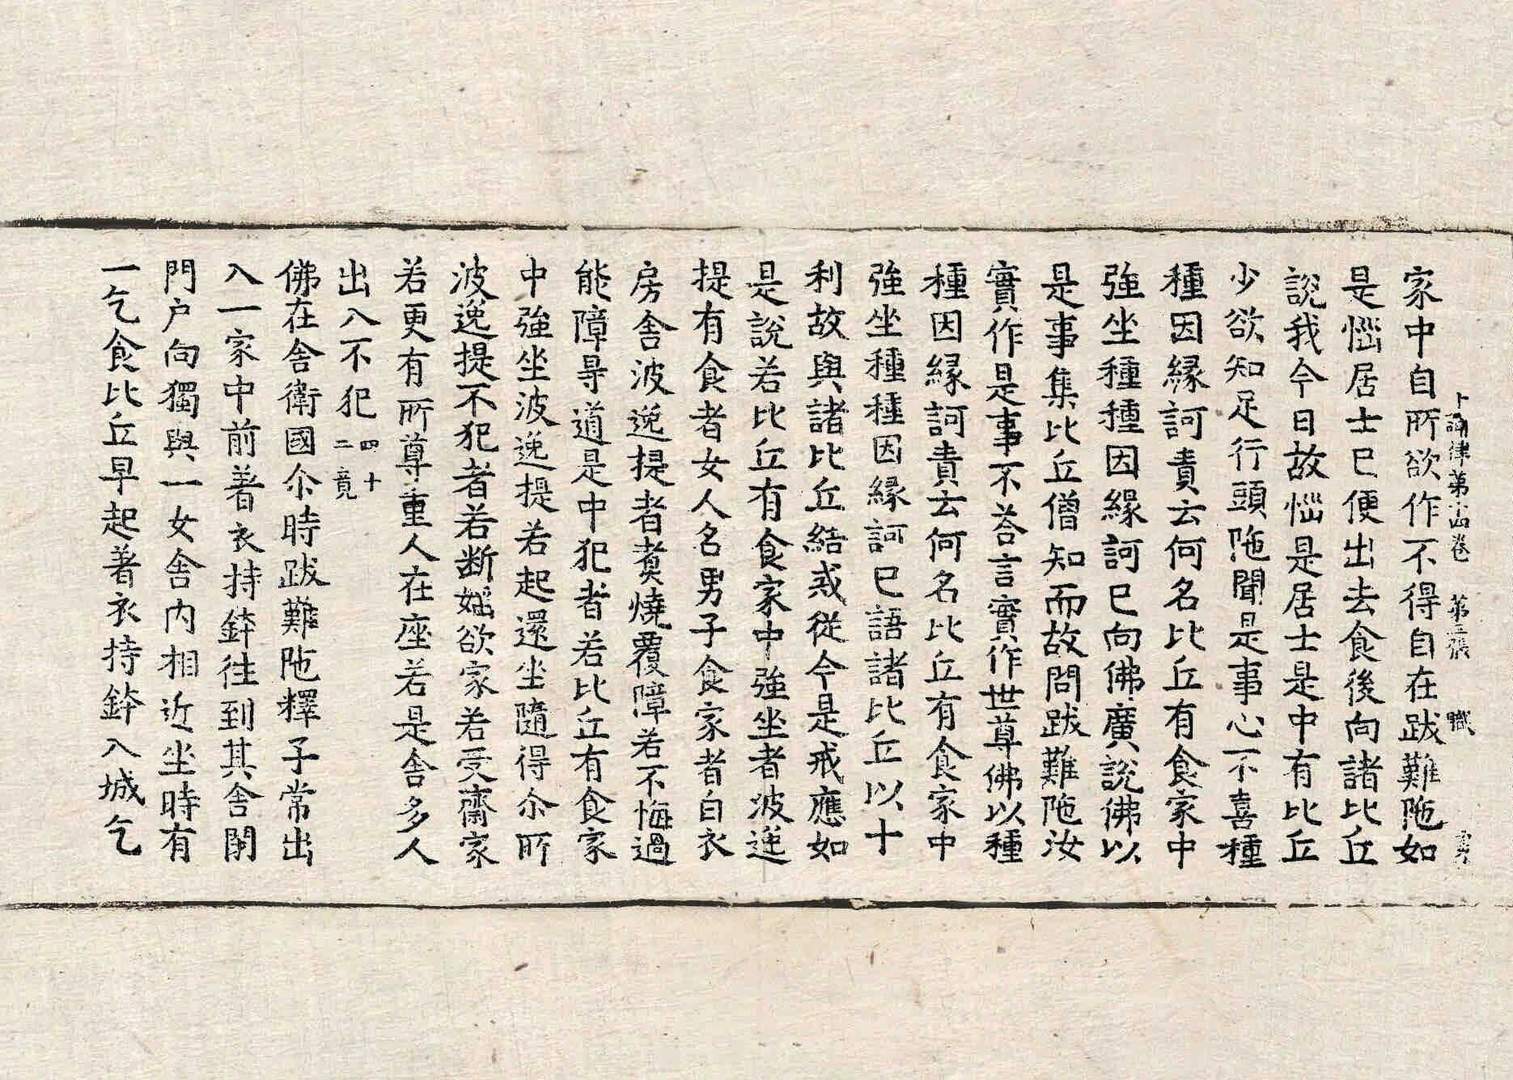 十誦律第十四卷 第二張 職
家中自所欲作不得自在跋難陁如
是惱居士已便出去食後向諸比丘
說我今日故惱是居士是中有比丘
少欲知足行頭陁聞是事心不喜種
種因緣訶責云何名比丘有食家中
強坐種種因緣訶已向佛廣說佛以
是事集比丘僧知而故問跋難陁汝
實作是事不荅言實作世尊佛以種
種因緣訶責云何名比丘有食家中
強坐種種因緣訶已語諸比丘以十
利故與諸比丘結戒從今是戒應如
是說若比丘有食家中強坐者波逸
提有食者女人名男子食家者白衣
房舍波逸提者煑燒覆障若不悔過
能障㝵道是中犯者若比丘有食家
中強坐波逸提若起還坐隨得尒所
波逸提不犯者若断婬欲家若受齋家
若更有所尊重人在座若是舍多人
出入不犯 四十二竟
佛在舍衛國尒時跋難陁釋子常出
入一家中前著衣持鉢往到其舍閇
門户向獨與一女舍内相近坐時有
一乞食比丘早起著衣持鉢入城乞